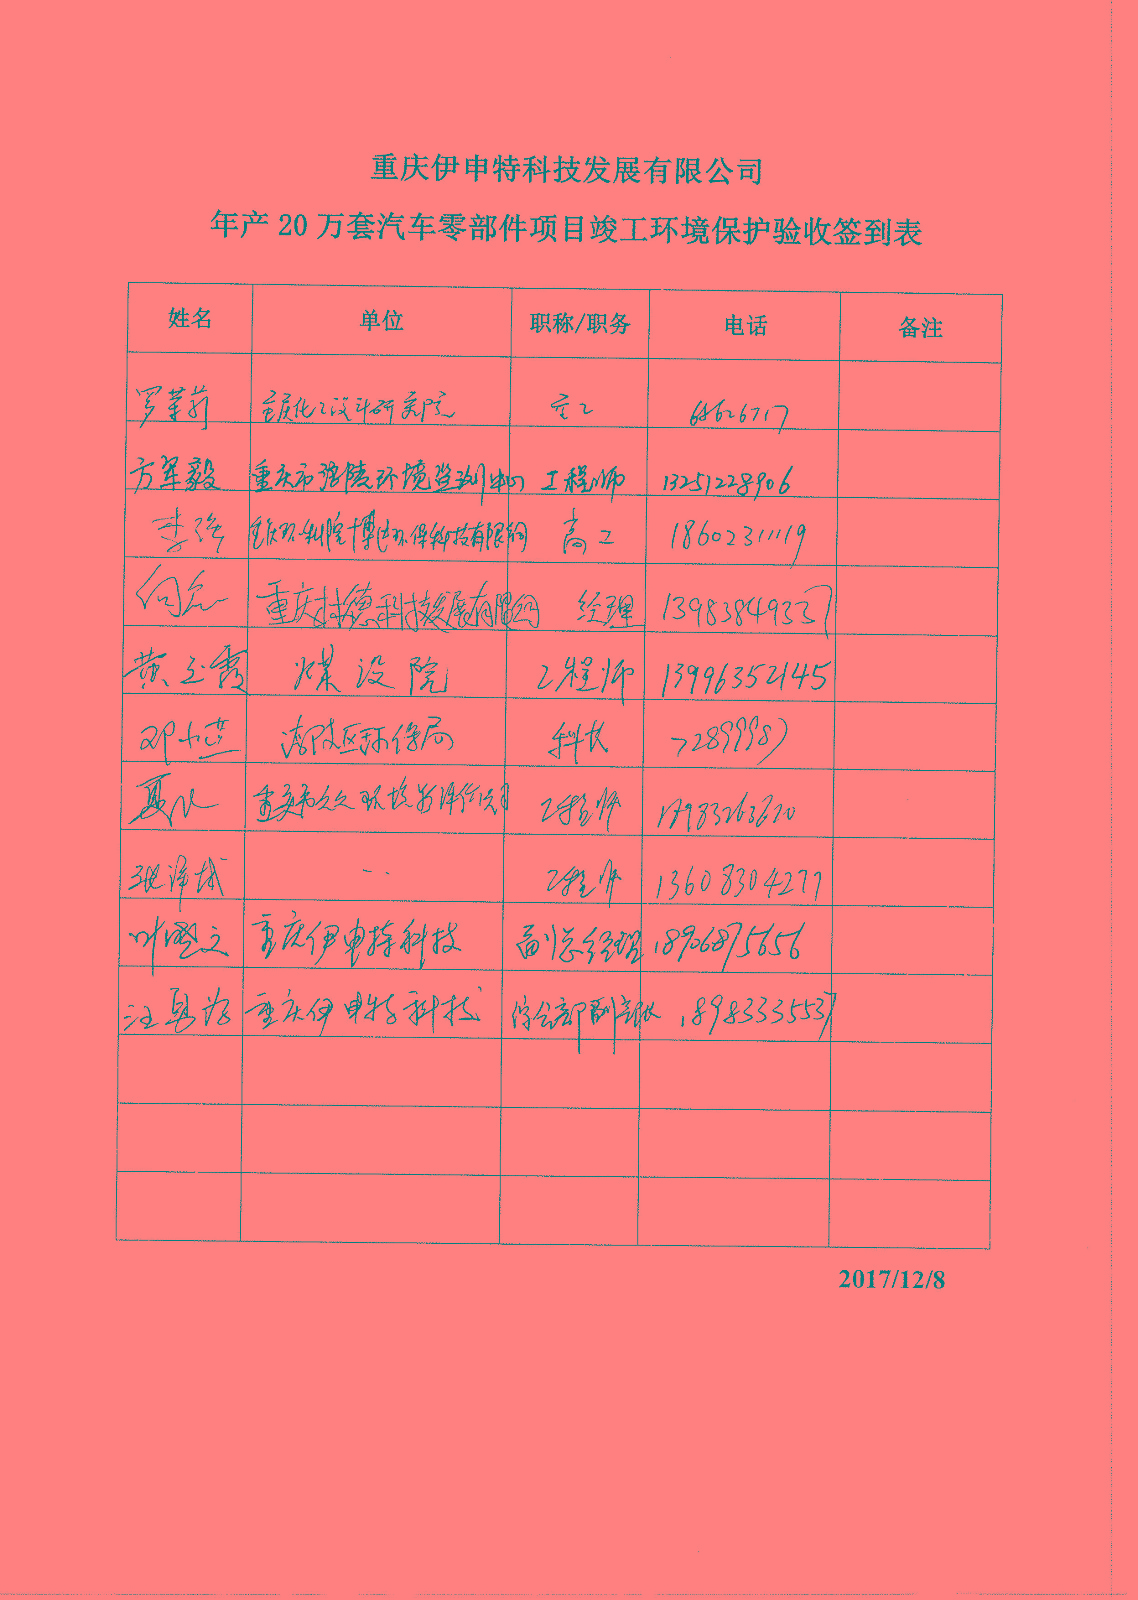 重庆伊申特科技发展有限公司
年产 20 万套汽车零部件项目竣工环境保护验收签到表
姓名 单位 职称/职务 电话 备注
罗 重庆化工设计研究院 68626717
方军毅 重庆市涪陵环境监测中心 工程师 13251228906
李强 重庆环科院博达环保科技有限公司 高工 18602311119
何 重庆 德科技发展有限公司 经理 13983849337
黄玉霞 煤设院 工程师 13996352145
邓小燕 涪陵区环保局 科长 72899987
夏 工程师 18983263620
张泽城 〃 工程师 13608304277
叶 立 重庆伊申特科技 副总经理 18906875656
汪勇 重庆伊申特科技 综合部副部长 18983335537
2017/12/8